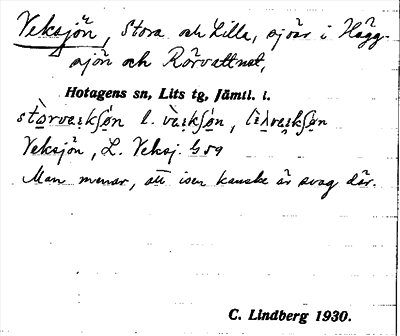 Veksjön, Stora och Lilla, sjöar i Hägg-
sjön och Rörvattnet,
Hotagens sn, Lits tg, Jämtl. l.
stòrvei̯kʃǿn l. vèi̯kʃǿn, lìlvei̯kʃøn
Veksjön, L. Veksj. G 59
Man menar, att isen kanske är svag där.
C. Lindberg 1930.